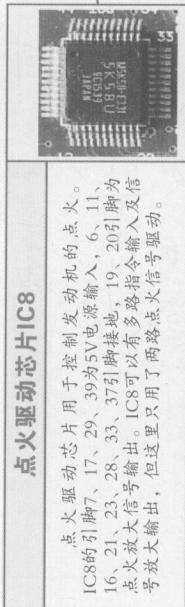 点火驱动芯片IC8
点火驱动芯片用于控制发动机的点火。
IC8的引脚7、17、29、39为5V电源输入，6、11、
16、21、23、28、33、37引脚接地，19、20引脚为
点火放大信号输出。IC8可以有多路指令输入及信
号放大输出，但这里只用了两路点火信号驱动。
33
5K58U
JAPAN